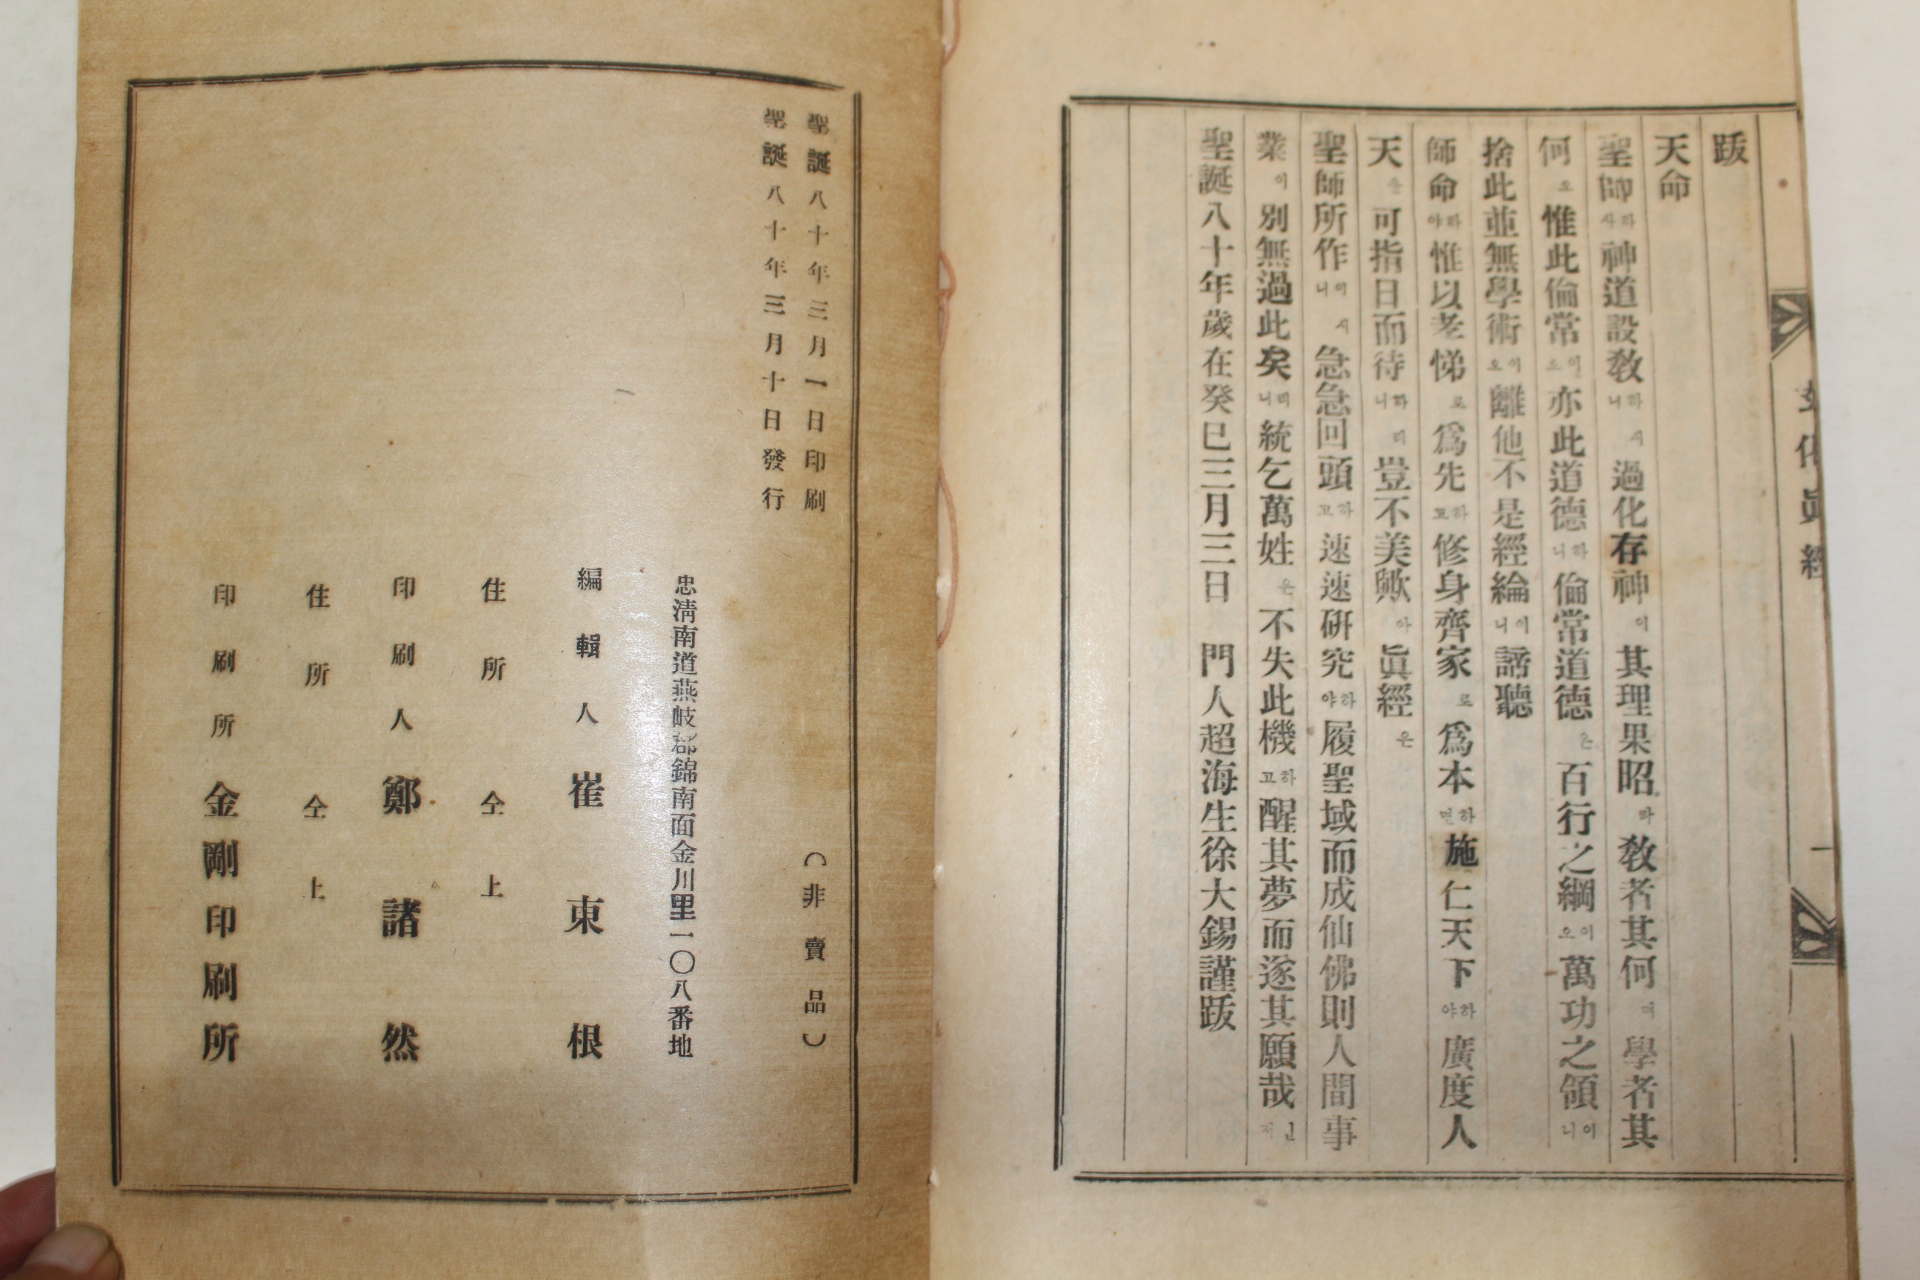 跋
天命
聖師하사神道設敎하시니過化存神이其理果昭라敎者其何며學者其
何오惟此倫常이오亦此道德하니倫常道德은百行之綱이오萬功之領이니
捨此並無學術이오離他不是經綸이니諦聽
師命하야惟以孝悌로爲先하고修身齊家로爲本하면施仁天下하야廣度人
天을可指日而待하리니豈不美歟아眞經은
聖師所作이시니急急回頭하고速速硏究하야履聖域而成仙佛則人間事
業이別無過此矣리니統乞萬姓은不失此機하고醒其夢而遂其願哉인저
聖誕八十年歲在癸巳三月三日 門人超海生徐大錫謹跋
化眞經
一
聖誕八十年三月一日印刷
聖誕八十年三月十日發行
(非賣品)
忠淸南道燕岐郡錦南面金川里一〇八番地
編輯人 崔東根
住所 仝上
印刷人 鄭諸然
住所 仝上
印刷所 金剛印刷所